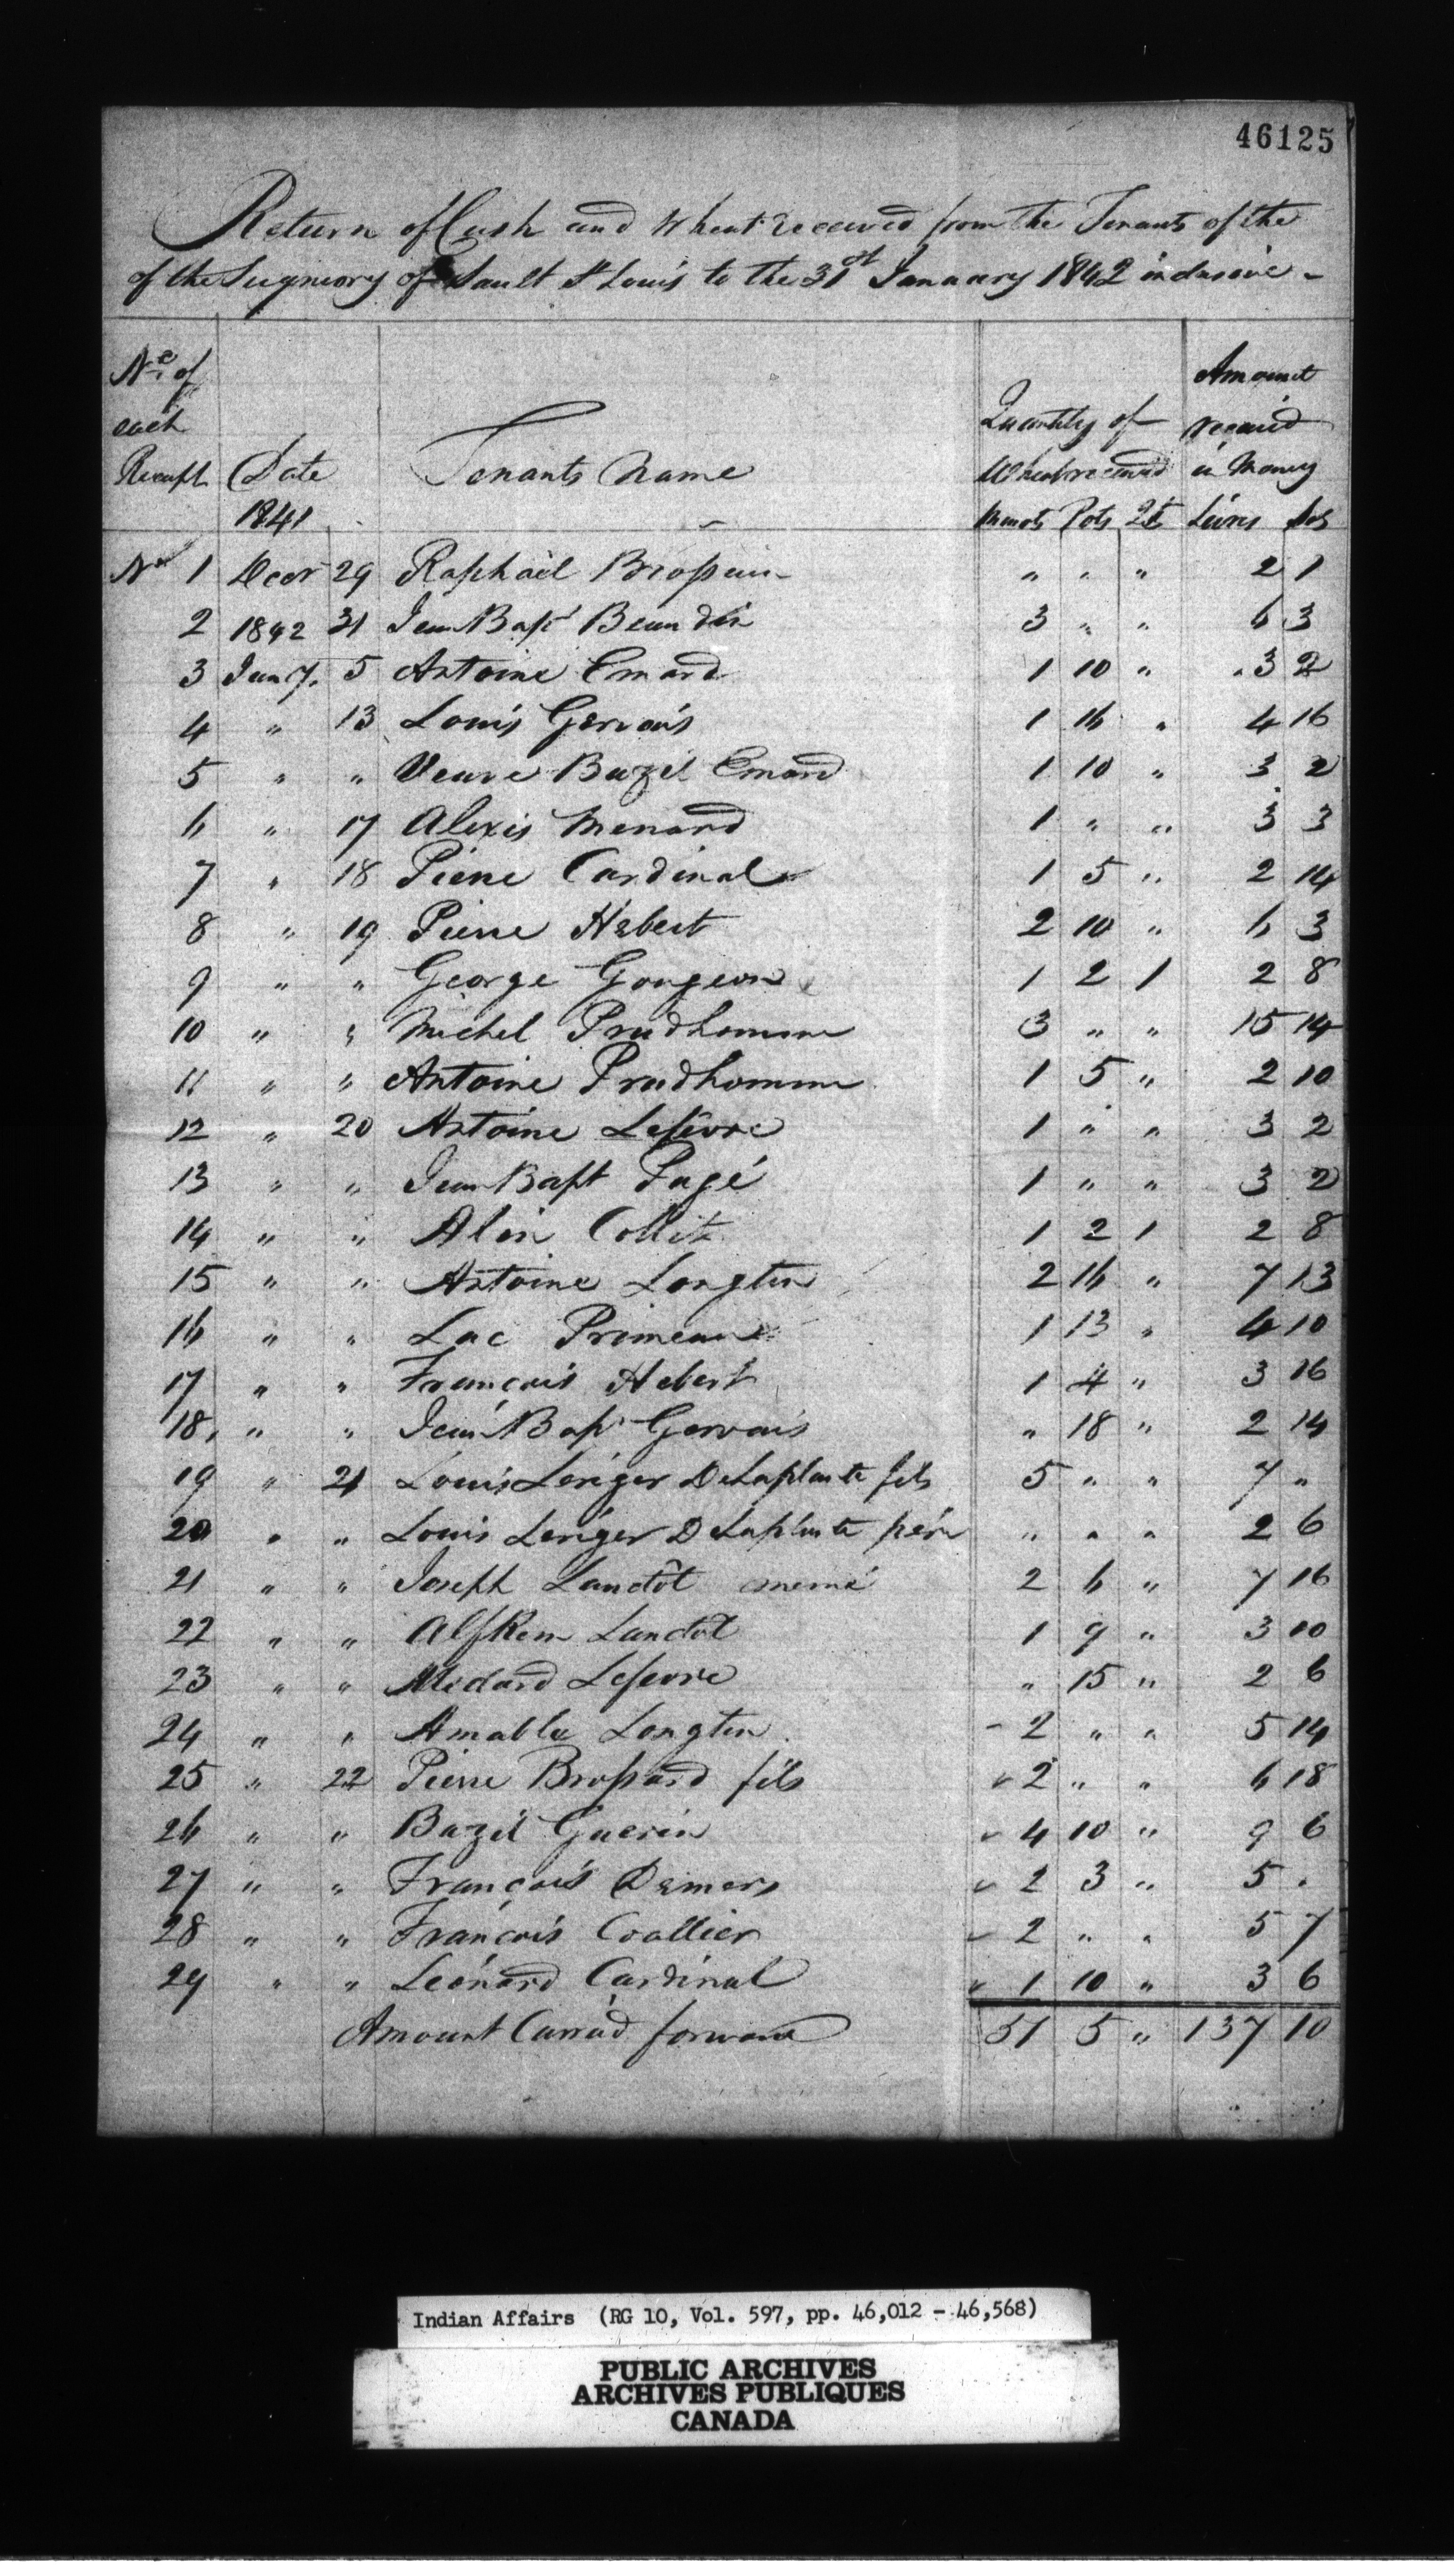 46125
Return of Cash and Wheat received from the Tenants of the
of the Seigniory of Sault St Louis to the 31st January 1842 inclusive -
No. of each Receipt Date 1841 Tenants Name Quantity of Wheat received Minots Pots Qt Amount received in Money Livres Sols
No 1 Decr 29 Raphaël Brossuin " " " 2 1
2 1842 31 Jean Bapt Beaudin 3 " " 6 3
3 Jany. 5 Antoine Emard 1 10 " 3 2
4 " 13 Louis Gervais 1 16 " 4 16
5 " " Veuve Bazil Emard 1 10 " 3 2
6 " 17 Alexis Menard 1 " " 3 3
7 " 18 Pierre Cardinal 1 5 " 2 14
8 " 19 Pierre Hebert 2 10 " 6 3
9 " " George Gougeon 1 2 1 2 8
10 " " Michel Prudhomme 3 " " 15 14
11 " " Antoine Prudhomme 1 5 " 2 10
12 " 20 Antoine Lefèvre 1 " " 3 2
13 " " Jean Bapt Pagé 1 " " 3 2
14 " " 1 2 1 2 8
15 " " Antoine Longtin 2 16 " 7 13
16 " " Luc Primeau 1 13 " 4 10
17 " " François Hebert 1 4 " 3 16
18, " " Jean Bap Gervais " 18 " 2 14
19 " 21 Louis Leriger DeLaplante fils 5 " " 7 "
20 " " Louis Leriger DeLaplante père " " " 2 6
21 " " Joseph Lanctôt 2 6 " 7 16
22 " " Lanctôt 1 9 " 3 10
23 " " Médard Lefevre " 15 " 2 6
24 " " Amable Longtin - 2 " " 5 14
25 " 22 Pierre Brossard fils 2 " " 6 18
26 " " Bazil Guerin 4 10 " 9 6
27 " " François Demers 2 3 " 5 "
28 " " François Coallier 2 " " 5 7
29 " " Leonard Cardinal 1 10 " 3 6
Amount Carried forward 51 5 " 137 10
Indian Affairs (RG 10, Vol. 597, pp. 46,012 - 46,568)
PUBLIC ARCHIVES
ARCHIVES PUBLIQUES
CANADA